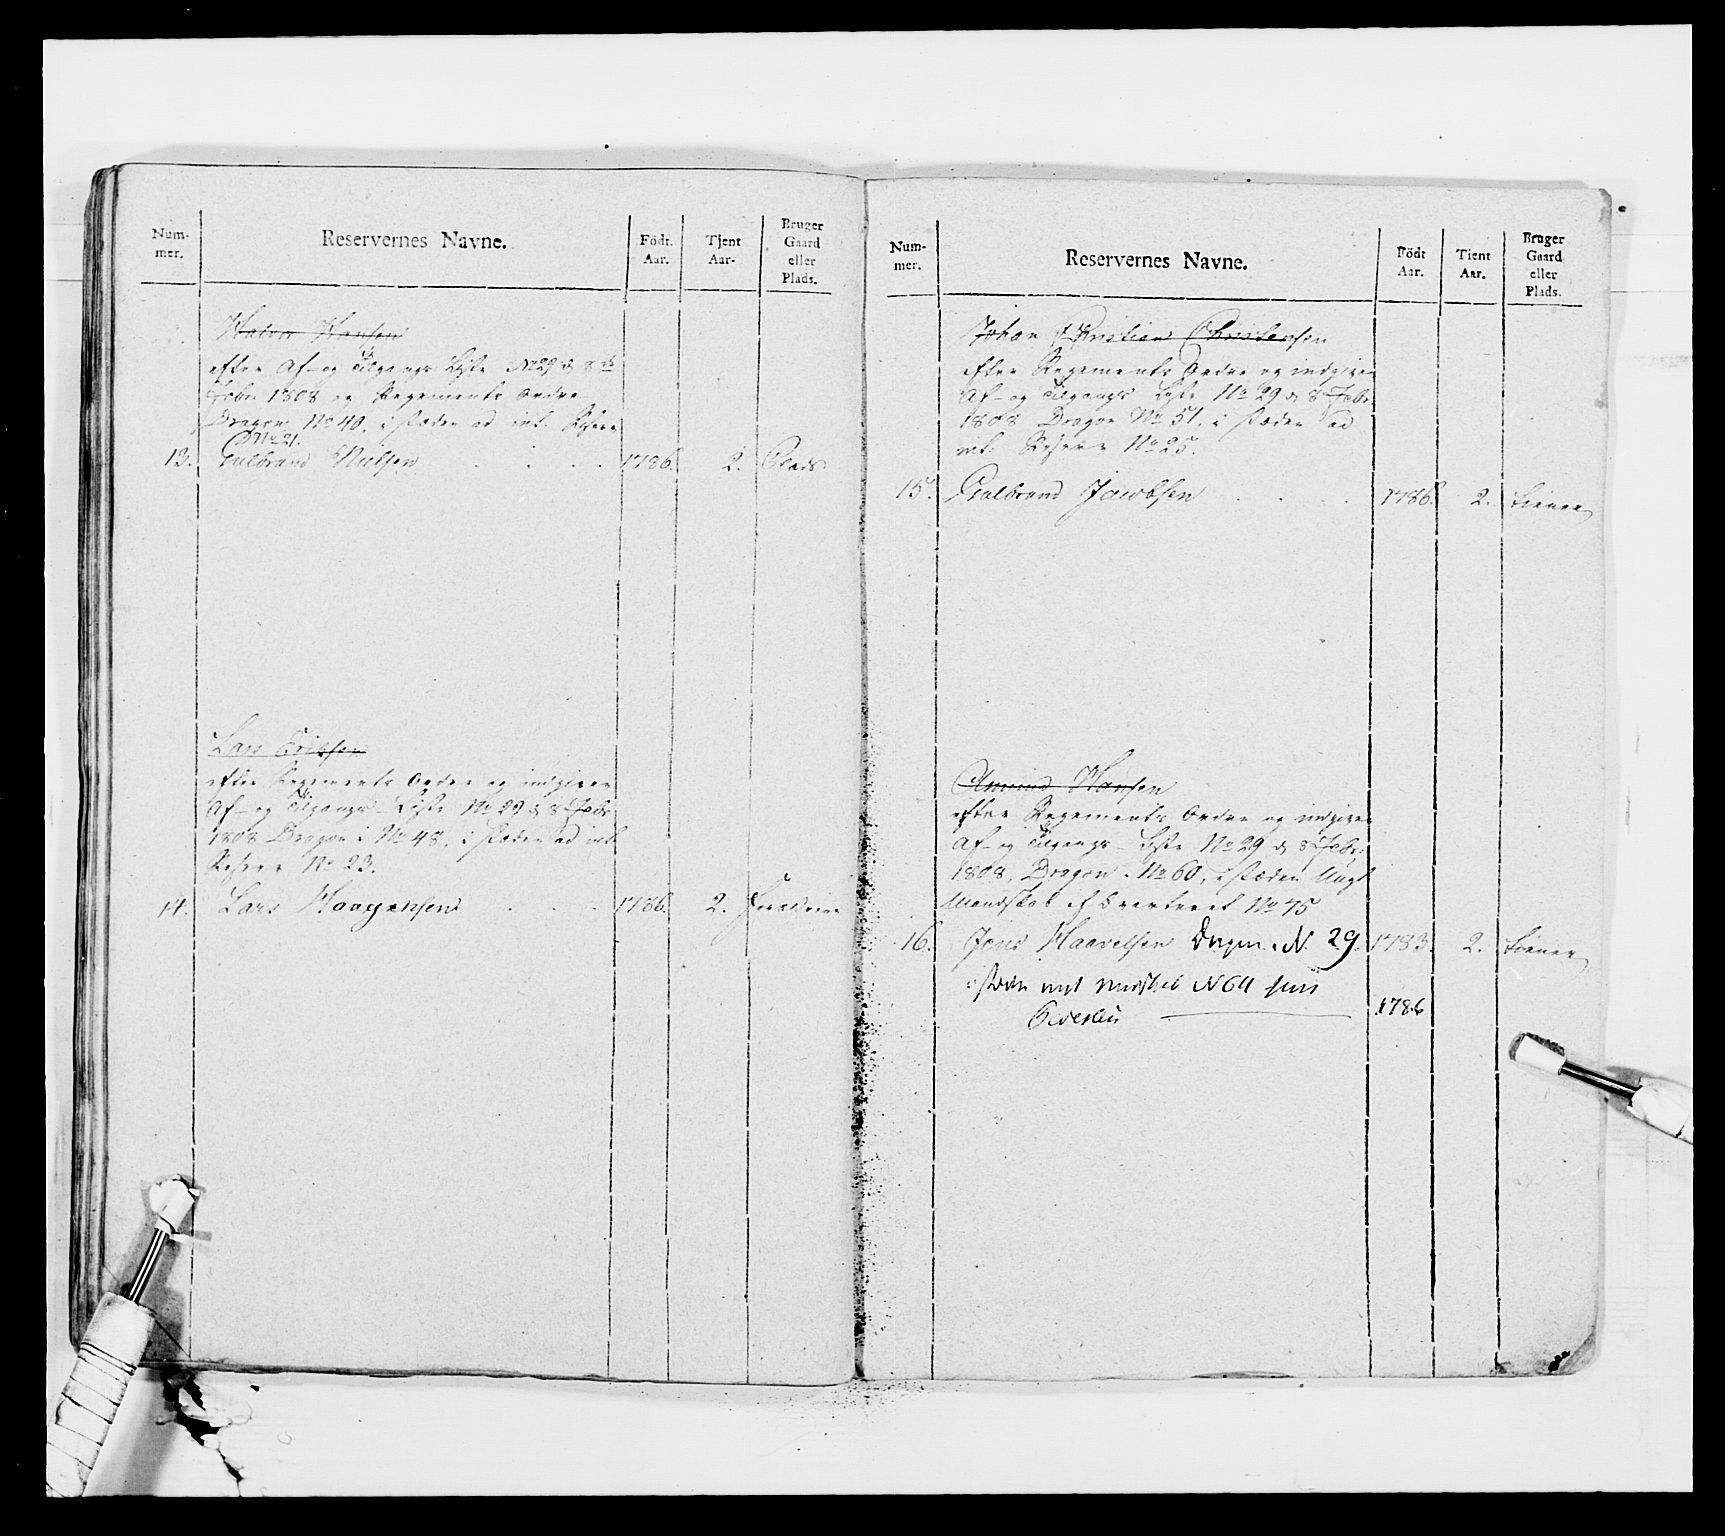 Num-
mer.
Reservernes Navne.
Född.
Aar.
Tjent
Aar-
Bruger
Gaard
eller
Plads.
Halvor Hansen
efter Af- og Tilgangs Liste No 29 d 8de
Febr 1808 og Regiments Ordre
Dragon No 40, i stæden ad int. Reserv
No 21.
13. Gulbrand Nielsen 1786. 2. Plads
Lars Erichsen
efter Regiments Ordre og indgiven
Af- og Tilgangs-Liste No 29 d 8 Febr
1808 Dragon i No 48, i stæden ad int
Reserve No 23.
14. Lars Haagensen 1786. 2.
Num-
mer.
Reservernes Navne.
Födt
Aar.
Tient
Aar.
Bruger
Gaard
eller
Plads.
Johan Christian Christensen
efter Regiments Ordre og indgiven
Af- og Tilgangs Liste No 29 d 8 Febr
1808 Dragon No 51, i stæden ad
int. Reserve No 25.
15. Gulbrand Jacobsen 1786. 2. tiener
Amund Hansen
efter Regiments Ordre og indgiven
Af- og Tilgangs-Liste No 29 d 8 Febr:
1808, Dragon No 60, i stæden Ungt
Mandskab af Qvarteret No 75
16. Jens Haavelsen Dragon N 29. 1783. 2. tiener
i stæden ungt mandskab N 64
1786